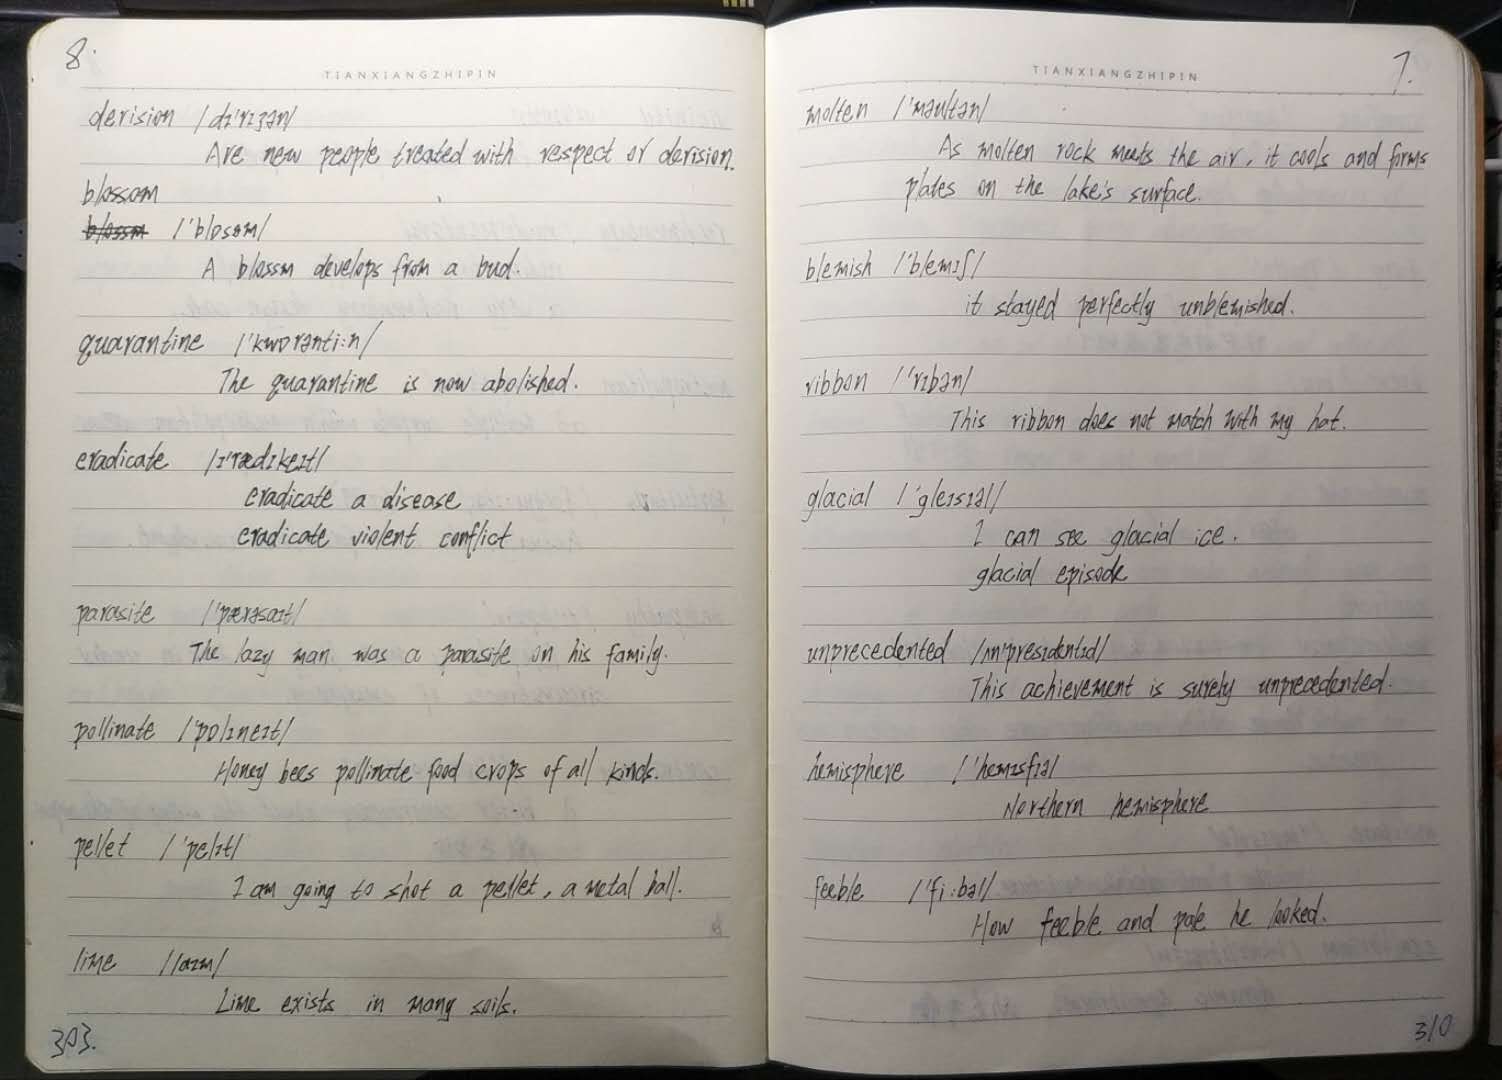 8.
TIANXIANGZHIPIN
derision /dɪ'rɪʒən/
Are new people treated with respect or derision.
blossom
blossm /'blɒsəm/
A blossm develops from a bud.
quarantine /'kwɒrənti:n/
The quarantine is now abolished.
eradicate /ɪ'rædɪkeɪt/
eradicate a disease
eradicate violent conflict
parasite /'pærəsaɪt/
The lazy man was a parasite on his family.
pollinate /'pɒlɪneɪt/
Honey bees pollinate food crops of all kinds.
pellet /'pelɪt/
I am going to shot a pellet, a metal ball.
lime /laɪm/
Lime exists in many soils.
303.
7.
TIANXIANGZHIPIN
molten /'məʊltən/
As molten rock meets the air, it cools and forms
plates on the lake's surface.
blemish /'blemɪʃ/
it stayed perfectly unblemished.
ribbon /'rɪbən/
This ribbon does not match with my hat.
glacial /'gleɪsɪəl/
I can see glacial ice.
glacial episode
unprecedented /ʌn'presɪdentɪd/
This achievement is surely unprecedented.
hemisphere /'hemɪsfɪə/
Northern hemisphere
feeble /'fi:bəl/
How feeble and pale he looked.
310